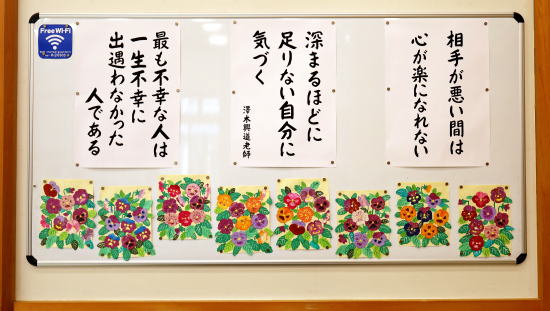 Free Wi-Fi
相手が悪い間は
心が楽になれない
深まるほどに
足りない自分に
気づく
澤木興道老師
最も不幸な人は
一生不幸に
出遇わなかった
人である